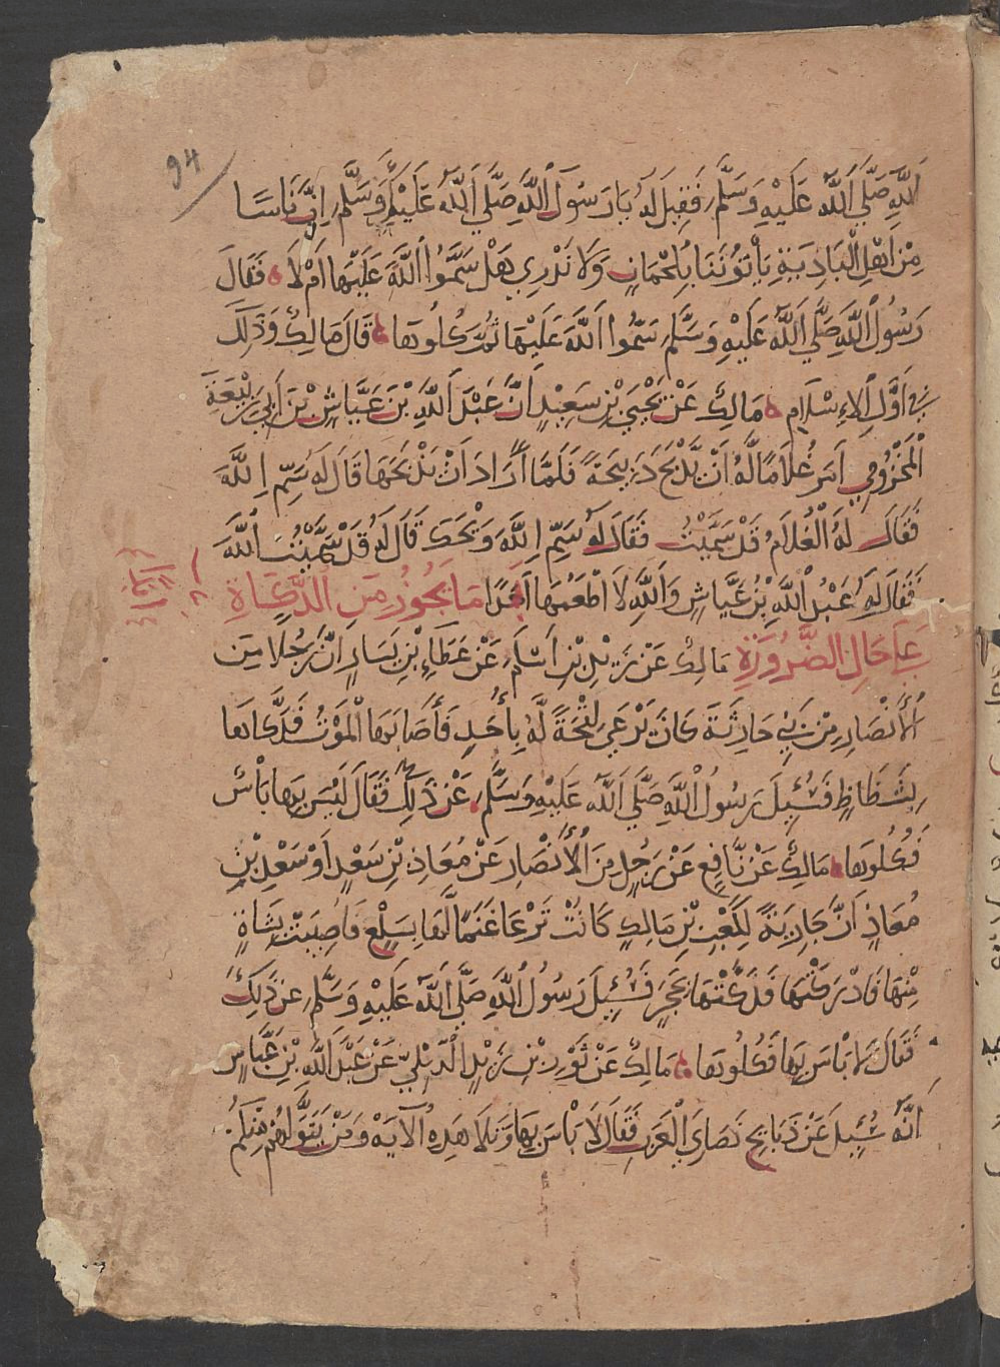 94
اللَّهِ صَلَّي اَللَّه عَلَيْهِ وَسَلَّم فَقِيلَ لَهُ يَا رَسُولَ اللَّهِ صَلَّي اَللَّه عَلَيْهِ وَسَلَّم اِنَّ نَاسًا
مِنْ اَهْلِ الْبَادِيَةِ يَأْتُونَنَا بِلُحْمَانٍ وَلَا نَدْرِي هَلْ سَمَّوُا اللَّهَ عَلَيْهَا اَمْ لَا فَقَالَ
رَسُولُ اللَّهِ صَلَّي اَللَّه عَلَيْهِ وَسَلَّم سَمُّوا اَللَّهَ عَلَيْهَا ثُمَّ كُلُوهَا قَالَ مَالِكٌ وَذَلِكَ
فِي اَوَّلِ الْاِسْلَامِ مَالِكٌ عَنْ يَحْيَي بْنِ سَعِيدٍ اَنَّ عَبْدَ اَللَّهِ بْنَ عَيَّاشِ بْنِ أَبِي رَبِيعَةَ
الْمَخْزُومِي اَمَرَ غُلَامًا لَّهُ اَنْ يَّذْبَحَ ذَبِيحَةً فَلَمَّا أَرَادَ اَنْ يَذْبَحَهَا قَالَ لَهُ سَمِّ اِللَّهَ
فَقَالَ لَهُ الْغُلَامُ قَدْ سَمَّيْتُ فَقَالَ لَهُ سَمِّ اِللَّهَ وَيْحَكَ قَالَ لَهُ قَدْ سَمَّيْتُ اَللَّهَ
فَقَالَ لَهُ عَبْدُ اَللَّهِ بْنُ عَيَّاشٍ وَاللَّهِ لَا اَطْعَمُهَا اَبَدًا مَا يَجُوزُ مِنَ الذَّكَاةِ
عَلَي حَالِ الضَّرُورَةِ مَالِكٌ عَنْ زَيْدِ بْنِ اَسْلَمَ عَنْ عَطَاءِ بْنِ يَسَارٍ اَنَّ رَجُلًا مِنَ
الْأَنْصَارِ مِنْ بَنِي حَارِثَةَ كَانَ يَرْعَي لِقْحَةً لَّهُ بِأُحُدٍ فَأَصَابَهَا الْمَوْتُ فَذَكَّاهَا
بِشَظَاظٍ فَسُئِلَ رَسُولُ اللَّهِ صَلَّي اَللَّه عَلَيْهِ وَسَلَّم عَنْ ذَلِكَ فَقَالَ لَيْسَ بِهَا بَأْسٌ
فَكُلُوهَا مَالِكٌ عَنْ نَّافِعٍ عَنْ رَجُلٍ مِنَ الْأَنْصَارِ عَنْ مُعَاذِ بْنِ سَعْدٍ اَوْ سَعْدِ بْنِ
مُعَاذٍ اَنَّ جَارِيَةً لِكَعْبِ بْنِ مَالِكٍ كَانَتْ تَرْعَا غَنَمًا لَّهَا بِسَلْعٍ فَأُصِيبَتْ شَاةٌ
مِنْهَا فَادْرَكَتْهَا فَذَكَّتْهَا بِحَجَرٍ فَسُئِلَ رَسُولُ اللَّهِ صَلَّي اَللَّه عَلَيْهِ وَسَلَّم عَن ذَلِكَ
فَقَالَ لَا بَأْسَ بِهَا فَكُلُوهَا مَالِكٌ عَنْ ثَوْرِ بْنِ زَيْدٍ الدِّيْلِيِّ عَنْ عَبْدِ اَللَّهِ بْنِ عَبَّاسٍ
اَنَّهُ سُئِلَ عَنْ ذَبَايِحِ نَصَارَي الْعَرَبِ فَقَالَ لَا بَأْسَ بِهَا وَتَلَا هَذِهِ الْآيَةَ وَمَنْ يَتَوَلَّهُمْ مِنْكُمْ